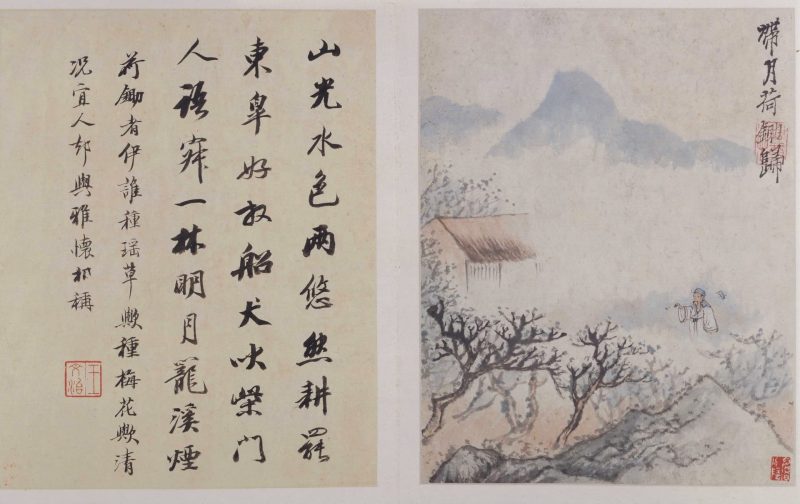 帶月荷鋤歸
山光水色兩悠然耕罷
東皋好放船犬吠柴門
人語寂一林明月籠溪煙
荷鋤者伊誰種瑶草歟種梅花歟清
况宜人却與雅懷相稱
王文治